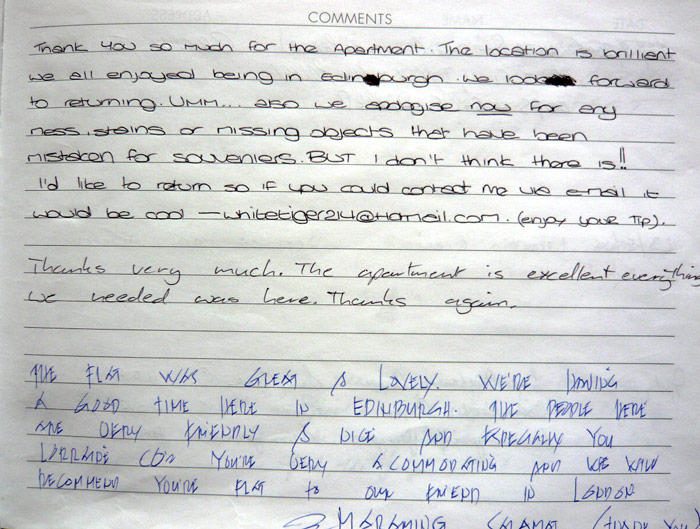 COMMENTS
Thank you so much for the Apartment. The location is brillient
we all enjoyed being in Edinburgh. we look forward
to returning. UMM... also we apologise now for any
mess, stains or missing objects that have been
mistaken for souveniers. BUT I don't think there is!!
I'd like to return so if you could contact me via email it
would be cool - whitetiger214@Hotmail.com. (enjoy your Tip).
Thanks very much. The apartment is excellent everything
we needed was here. Thanks again.
THE FLAT WAS GREAT & LOVELY. WE'RE HAVING
A GOOD TIME HERE IN EDINBURGH. THE PEOPLE HERE
ARE VERY FRIENDLY & NICE AND ESPECIALLY YOU
LORRAINE COS YOU'RE VERY ACCOMMODATING AND WE WILL
RECOMMEND YOU'RE FLAT to OUR FRIEND IN LONDON
SALAMAT (THANK YOU)